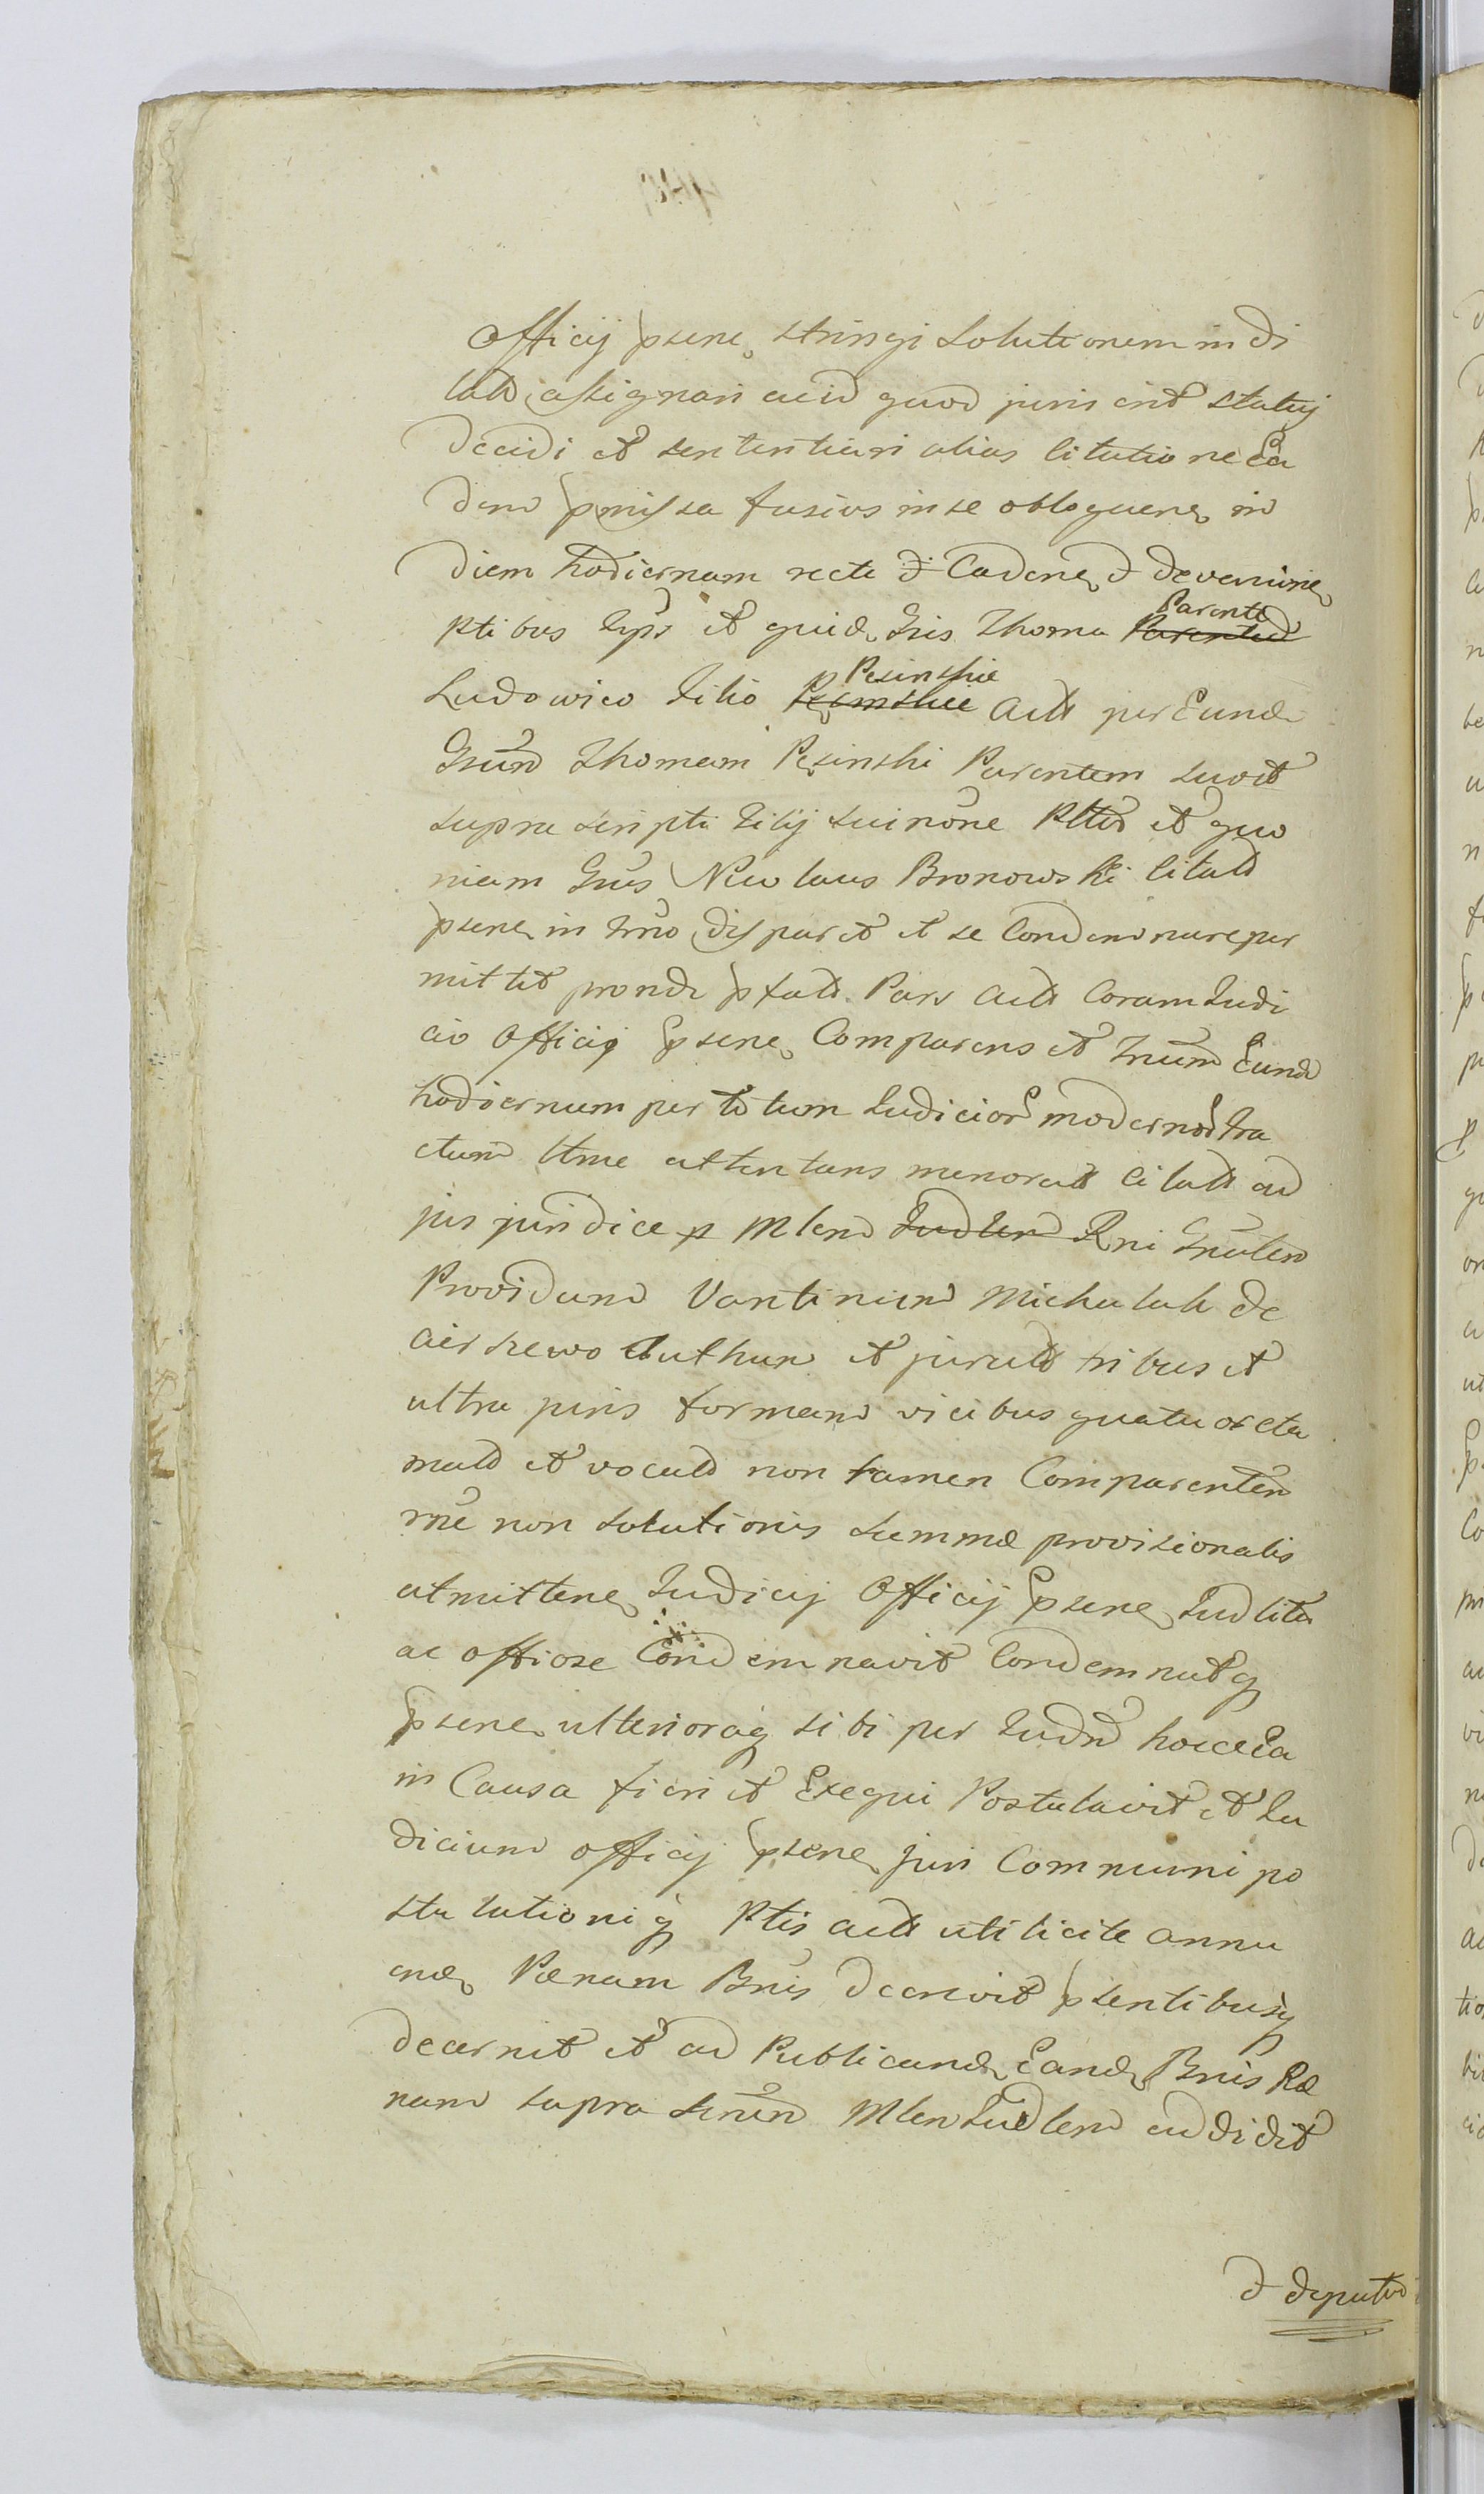 Officij psene stringi Solutionem in di
latt assignari acid quod juris erit statuj
decidi et sententiari alias Citatione Ea
dem pmissa fusius in se obloquene in
diem hodiernam recte & Cadene & devenine
Ptibus Ipis et quide Gsis Thoma Parente
Ludowico Filio Pesinskie Actt per Eund
Gsum Thomam Pesinski Parentem suo et
supra scripti Filij sui none Pltter et quo
niam Gsus Nicolaus Bronowski Citatt
psene in Trno disparet et se Condemnare per
mittit pronde pfatt. Pars Actt Coram Judi
cio Officij psene Comparens et Trnum Eund
hodiernum per totum Judicior modernor tra
ctum ltme attentans memoratt Citatt ad
jus juridice p Mlem Judlem Rni Gnalem
Providum Vantinum Michalak de
Cierzewo Authen et juratt tribus et
ultra juris formam vicibus quatuor cla
matt et vocatt non tamen Comparentem
rne non Solutionis Summæ provisionalis
atmittene Judicij Officij psene Judlite
ac offiose Condemnavit Condemnatq
psene ulterioraq sibi per Judm hocce Ea
in Causa fieri et Exequi Postulavit et Ju
dicium officij psene juri Communi po
stulationiq Ptis actt uti licite annu
end Pænam Bnis decrevit psentibusq
decernit et ad Publicand Eand Bnis Pæ
nam supra scrum Mlem Judlem addidit
& deputav